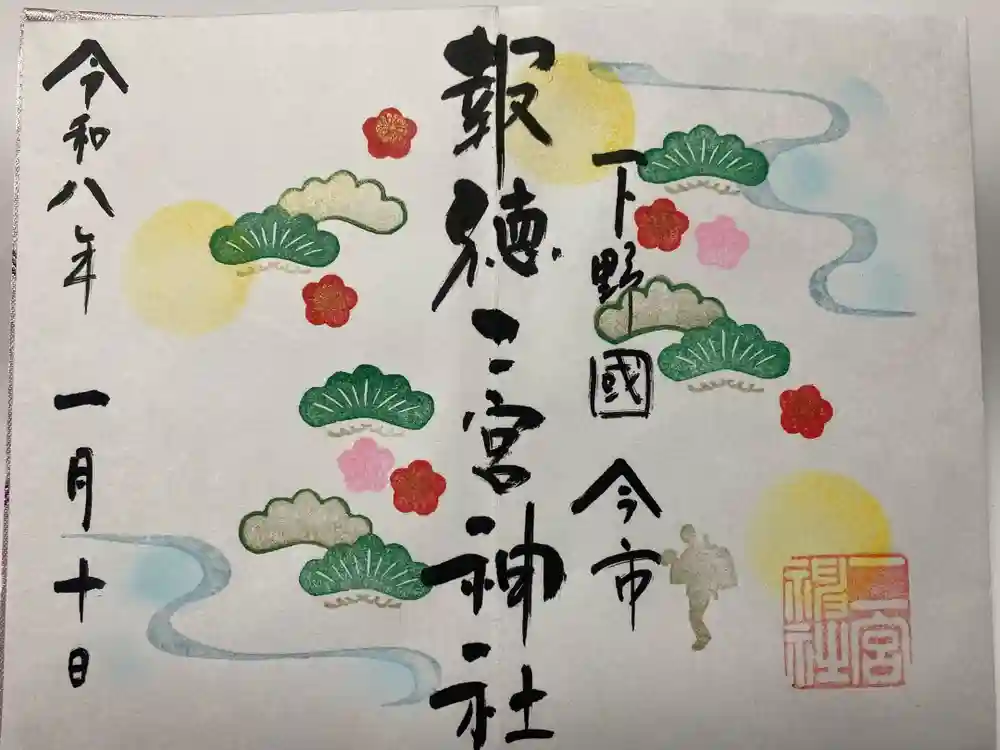 下野國 今市
報徳二宮神社
令和八年 一月十日
二宮
神社